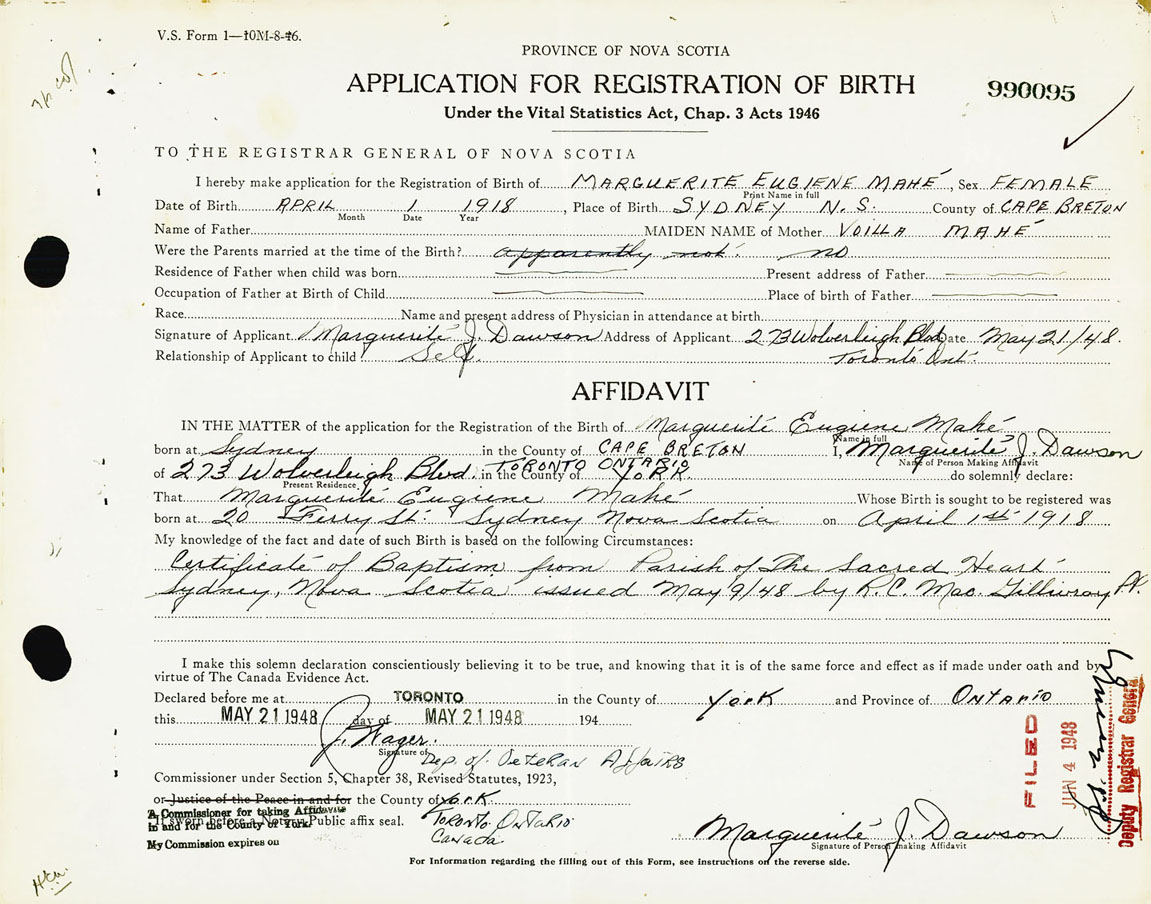 V.S. Form 1—10M-8-46.
PROVINCE OF NOVA SCOTIA
APPLICATION FOR REGISTRATION OF BIRTH
990095
Under the Vital Statistics Act, Chap. 3 Acts 1946
TO THE REGISTRAR GENERAL OF NOVA SCOTIA
I hereby make application for the Registration of Birth of MARGUERITE EUGIENE MAHÉ, Sex FEMALE
Print Name in full
Date of Birth APRIL 1 1918, Place of Birth SYDNEY N.S. County of CAPE BRETON
Month Date Year
Name of Father MAIDEN NAME of Mother VOILLA MAHÉ
Were the Parents married at the time of the Birth? apparently not. no
Residence of Father when child was born Present address of Father
Occupation of Father at Birth of Child Place of birth of Father
Race Name and present address of Physician in attendance at birth
Signature of Applicant Marguerite J. Dawson Address of Applicant 273 Wolverleigh Blvd Date May 21/48.
Relationship of Applicant to child Self. Toronto Ont.
AFFIDAVIT
IN THE MATTER of the application for the Registration of the Birth of Marguerite Eugiene Mahé
Name in full
born at Sydney in the County of CAPE BRETON I, Marguerite J. Dawson
Name of Person Making Affidavit
of 273 Wolverleigh Blvd. TORONTO ONTARIO in the County of YORK do solemnly declare:
Present Residence
That Marguerite Eugiene Mahé Whose Birth is sought to be registered was
born at 20 Ferry St. Sydney Nova Scotia on April 1st 1918
My knowledge of the fact and date of such Birth is based on the following Circumstances:
Certificate of Baptism from Parish of The Sacred Heart
Sydney, Nova Scotia issued May 9/48 by R.C. Mac. Gillivray
I make this solemn declaration conscientiously believing it to be true, and knowing that it is of the same force and effect as if made under oath and by
virtue of The Canada Evidence Act.
Declared before me at TORONTO in the County of York and Province of ONTARIO
this MAY 21 1948 day of MAY 21 1948 194
J. Wager.
Signature of
Dep. of Veteran Affairs
Commissioner under Section 5, Chapter 38, Revised Statutes, 1923,
or Justice of the Peace in and for the County of York
A Commissioner for taking Affidavits
If sworn before a Notary Public affix seal.
in and for the County of York
TORONTO ONTARIO
CANADA
My Commission expires on
Marguerite J. Dawson
Signature of Person making Affidavit
For Information regarding the filling out of this Form, see instructions on the reverse side.
FILED
JUN 4 1948
Deputy Registrar General